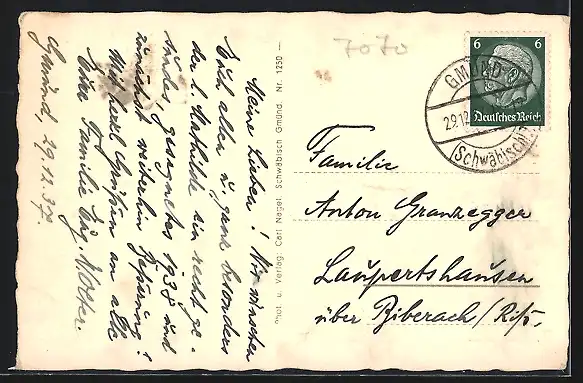 Meine Lieben! Wir wünschen
Euch allen u. ganz besonders
der l. Mathilde ein recht ge-
sundes, gesegnetes 1938 und
zunächst weiterhin Besserung!
Mit herzl. Grüßen an alle
Eure Familie Eug.
Gmünd, 29.12.37.
Phot. u. Verlag: Carl Nagel, Schwäbisch Gmünd. Nr. 1230
7070
6 6
Deutsches Reich
GMÜND
29.12.
(Schwäbisch)
Familie
Anton Granzegger
Laupertshausen
über Biberach/Riß.